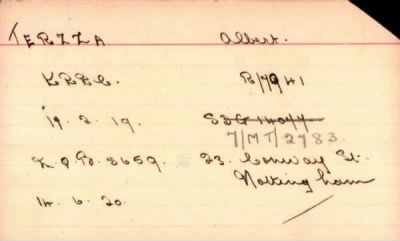 TERZZA Albert.
K.R.R.C. R/7941
19. 2. 19. SDG 14044.
7/MT/2783.
K.O.B. 3659. 23. Conway St.
Nottingham
14. 6. 20.